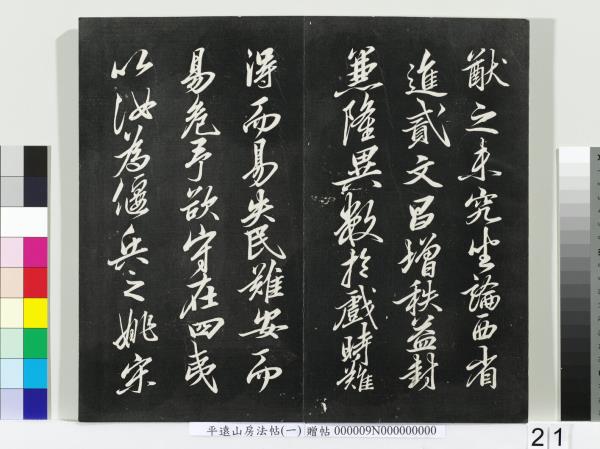 猷之未究坐論西省
進貳文昌增秩益封
兼隆異數於戲時難
得而易失民難安而
易危予欲守在四夷
以汝為偃兵之姚宋
平遠山房法帖(一) 贈帖 000009N000000000
21